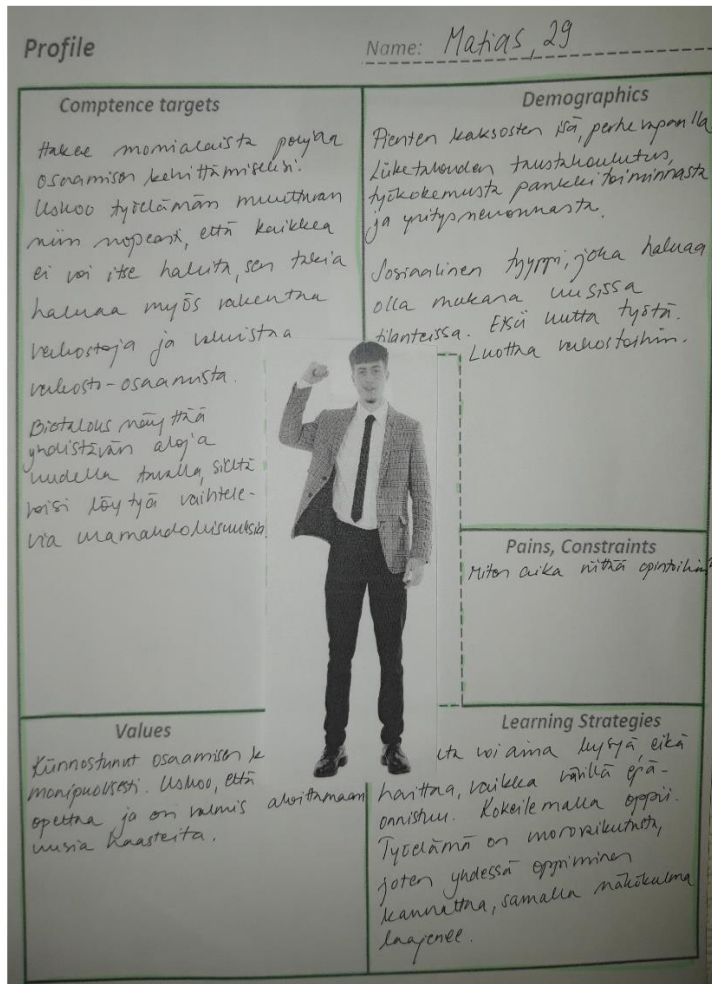 Profile
Name: Matias, 29
Comptence targets
Hakee monialaista pohjaa
osaamisen kehittämiseksi.
Uskoo työelämän muuttuvan
niin nopeasti, että kaikkea
ei voi itse hallita, sen takia
haluaa myös rakentaa
verkostoja ja vahvistaa
verkosto-osaamista.
Biotalous näyttää
yhdistävän aloja
uudella tavalla, sieltä
voisi löytyä vaihtele-
via uramahdollisuuksia
Demographics
Pienten kaksosten isä, perhevapaalla
Liiketalouden taustakoulutus,
työkokemusta pankkitoiminnasta
ja yritysneuvonnasta.
Sosiaalinen tyyppi, joka haluaa
olla mukana uusissa
tilanteissa. Etsii uutta työtä.
Luottaa verkostoihin.
Pains, Constraints
Miten aika riittää opintoihin
Values
Kiinnostunut osaamisen k
monipuolisesti. Uskoo, että
opettaa ja on valmis aloittamaan
uusia haasteita.
Learning Strategies
uta voi aina kysyä eikä
haittaa, vaikka välillä epä-
onnistuu. Kokeilemalla oppii.
Työelämä on vuorovaikutusta,
joten yhdessä oppiminen
kannattaa, samalla näkökulma
laajenee.